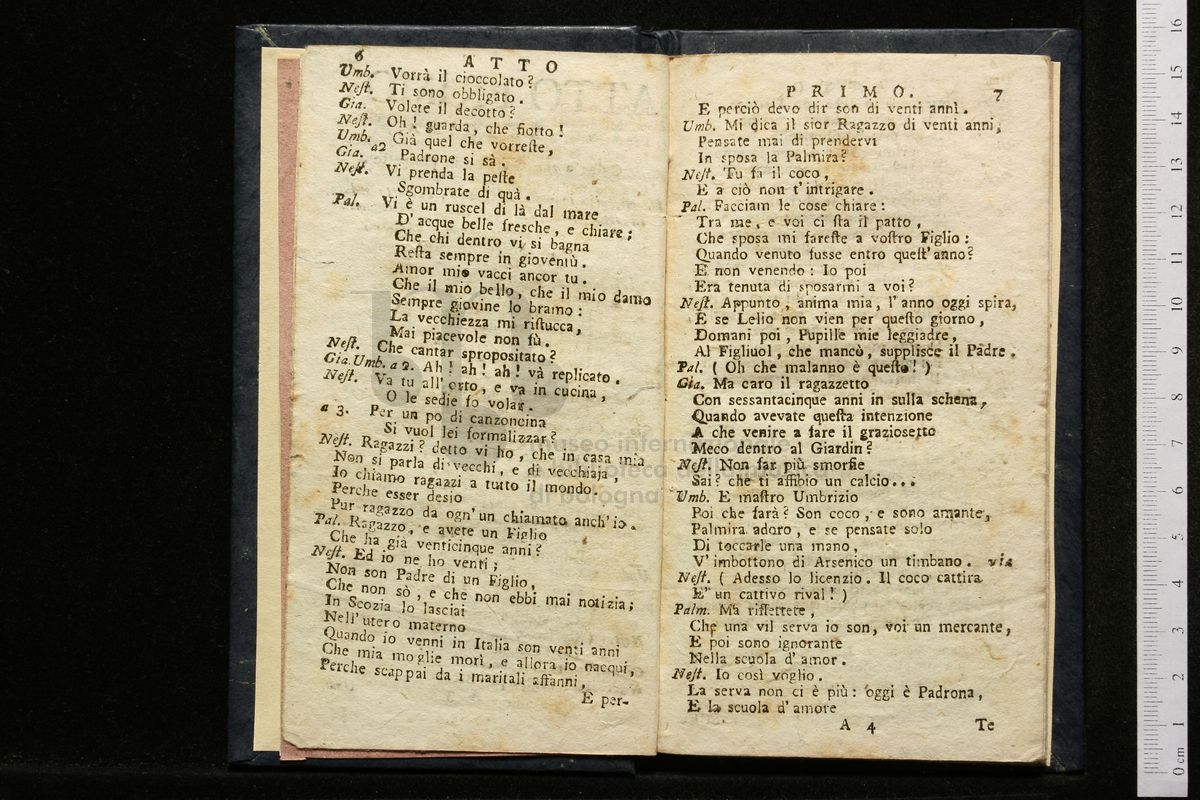 6 ATTO
Umb. Vorrà il cioccolato?
Nest. Ti sono obbligato.
Gia. Volete il decotto?
Nest. Oh! guarda, che fiotto!
Umb. Già quel che vorreste,
Gia. a2 Padrone si sà.
Nest. Vi prenda la peste
Sgombrate di quà.
Pal. Vi è un ruscel di là dal mare
D'acque belle fresche, e chiare;
Che chi dentro vi si bagna
Resta sempre in gioventù.
Amor mio vacci ancor tu.
Che il mio bello, che il mio damo
Sempre giovine lo bramo:
La vecchiezza mi ristucca,
Mai piacevole non fù.
Nest. Che cantar spropositato?
Gia. Umb. a 2. Ah! ah! ah! và replicato.
Nest. Va tu all'orto, e va in cucina,
O le sedie fo volar.
a 3. Per un po di canzoncina
Si vuol lei formalizzar?
Nest. Ragazzi? detto vi ho, che in casa mia
Non si parla di vecchi, e di vecchiaja,
Io chiamo ragazzi a tutto il mondo.
Perche esser desio
Pur ragazzo da ogn'un chiamato anch'io.
Pal. Ragazzo, e avete un Figlio
Che ha già venticinque anni?
Nest. Ed io ne ho venti;
Non son Padre di un Figlio,
Che non sò, e che non ebbi mai notizia;
In Scozia lo lasciai
Nell'utero materno
Quando io venni in Italia son venti anni
Che mia moglie morì, e allora io nacqui,
Perche scappai da i maritali affanni,
E per-
PRIMO. 7
E perciò devo dir son di venti anni.
Umb. Mi dica il sior Ragazzo di venti anni,
Pensate mai di prendervi
In sposa la Palmira?
Nest. Tu fa il coco,
E a ciò non t'intrigare.
Pal. Facciam le cose chiare:
Tra me, e voi ci sta il patto,
Che sposa mi fareste a vostro Figlio:
Quando venuto fusse entro quest'anno?
E non venendo: Io poi
Era tenuta di sposarmi a voi?
Nest. Appunto, anima mia, l'anno oggi spira,
E se Lelio non vien per questo giorno,
Domani poi, Pupille mie leggiadre,
Al Figliuol, che mancò, supplisce il Padre.
Pal. (Oh che malanno è questo!)
Gia. Ma caro il ragazzetto
Con sessantacinque anni in sulla schena,
Quando avevate questa intenzione
A che venire a fare il graziosetto
Meco dentro al Giardin?
Nest. Non far più smorfie
Sai? che ti affibio un calcio...
Umb. E mastro Umbrizio
Poi che farà? Son coco, e sono amante,
Palmira adoro, e se pensate solo
Di toccarle una mano,
V'imbottono di Arsenico un timbano. via
Nest. (Adesso lo licenzio. Il coco cattira
E' un cattivo rival!)
Palm. Ma riflettete,
Che una vil serva io son, voi un mercante,
E poi sono ignorante
Nella scuola d'amor.
Nest. Io così voglio.
La serva non ci è più: oggi è Padrona,
E la scuola d'amore
A 4 Te